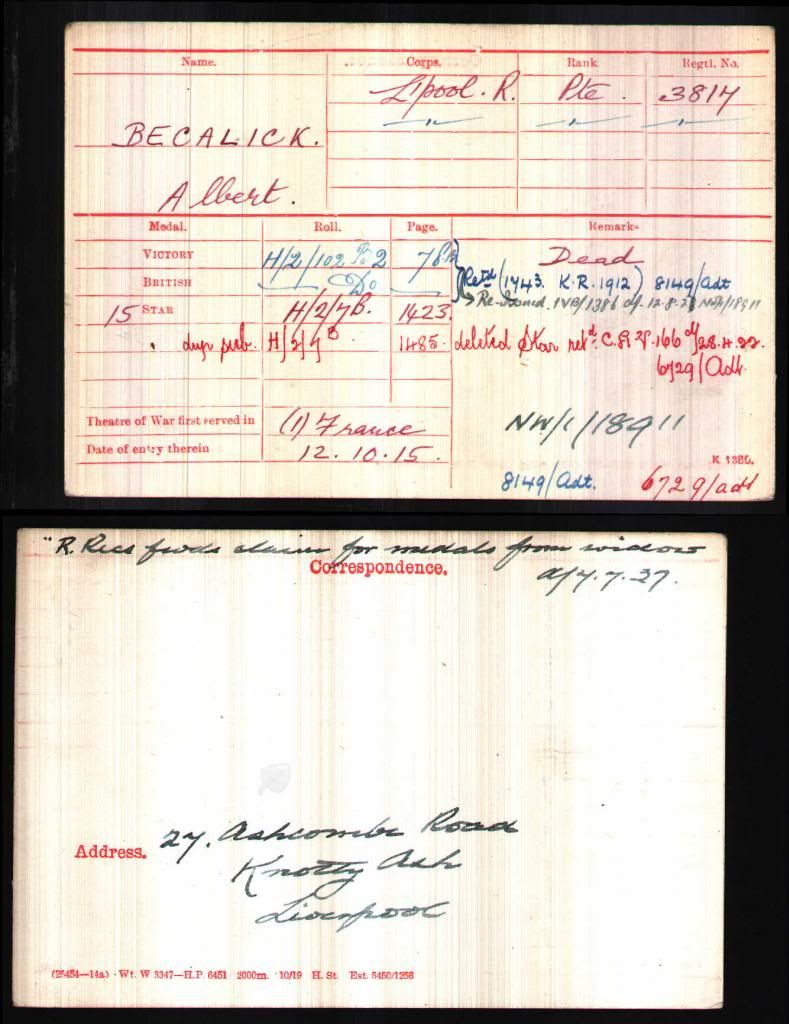 Name. Corps. Rank Regtl. No.
L'pool. R. Pte. 3817
" " "
BECALICK.
Albert.
Medal. Roll. Page. Remarks
VICTORY H/2/102 Pt 2 78 Dead
BRITISH Do Retd (1743. K.R. 1912) 8149/adt
Re-Issued 1VB/1386 d/- 12.8.2 NW/1/18911
15 STAR H/2/7B. 1423.
" H/2/7B 1485 deleted Star retd. C.R.V. 166 d/28.4.22.
6729/Adt.
Theatre of War first served in (1) France NW/1/18911
Date of entry therein 12.10.15. K 1380.
8149/Adt. 6729/adt
"R. Recs fwds claim for medals from widow
Correspondence. d/4.7.27.
Address. 27. Ashcombe Road
Knotty Ash
Liverpool
(25454—14a) Wt. W 3347—H.P. 6451 2000m. 10/19 H. St. Est. 5450/1256